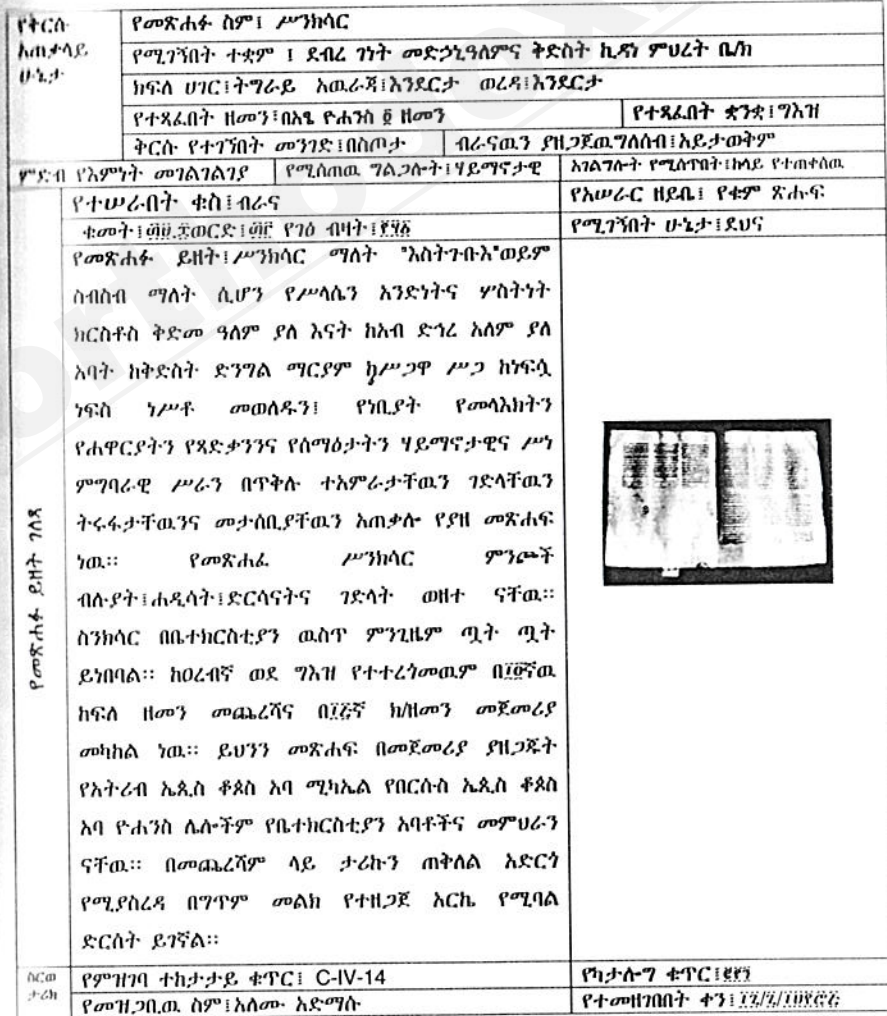 የቅርሱ አጠቃላይ ሁኔታ
የመጽሐፉ ስም፤ ሥንክሳር
የሚገኝበት ተቋም ፤ ደብረ ገነት መድኃኒዓለምና ቅድስት ኪዳነ ምህረት ቤ/ክ
ክፍለ ሀገር፤ትግራይ አዉራጃ፤እንደርታ ወረዳ፤እንደርታ
የተጻፈበት ዘመን፡በአፄ ዮሐንስ ፬ ዘመን የተጻፈበት ቋንቋ፤ግእዝ
ቅርሱ የተገኘበት መንገድ፤በስጦታ ብራናዉን ያዘጋጀዉግለሰብ፤አይታወቅም
ምድብ የእምነት መገልገልገያ የሚሰጠዉ ግልጋሎት፤ሃይማኖታዊ አገልግሎት የሚሰጥበት፤ከላይ የተጠቀሰዉ
የተሠራበት ቁስ፤ብራና የአሠራር ዘይቤ፤ የቁም ጽሑፍ
ቁመት፤ ወርድ፤ የገፅ ብዛት፤ የሚገኝበት ሁኔታ፤ደህና
የመጽሐፉ ይዘት ገለጻ
የመጽሐፉ ይዘት፤ሥንክሳር ማለት "እስትጉቡእ"ወይም
ስብስብ ማለት ሲሆን የሥላሴን አንድነትና ሦስትነት
ክርስቶስ ቅድመ ዓለም ያለ እናት ከአብ ድኅረ አለም ያለ
አባት ከቅድስት ድንግል ማርያም ከሥጋዋ ሥጋ ከነፍሷ
ነፍስ ነሥቶ መወለዱን፤ የነቢያት የመላእክትን
የሐዋርያትን የጻድቃንንና የሰማዕታትን ሃይማኖታዊና ሥነ
ምግባራዊ ሥራን በጥቅሉ ተአምራታቸዉን ገድላቸዉን
ትሩፋታቸዉንና መታሰቢያቸዉን አጠቃሎ የያዘ መጽሐፍ
ነዉ፡፡ የመጽሐፈ ሥንክሳር ምንጮች
ብሉያት፤ሐዲሳት፤ድርሳናትና ገድላት ወዘተ ናቸዉ፡፡
ስንክሳር በቤተክርስቲያን ዉስጥ ምንጊዜም ጧት ጧት
ይነበባል፡፡ ከዐረብኛ ወደ ግእዝ የተተረጎመዉም በ፲፬ኛዉ
ክፍለ ዘመን መጨረሻና በ፲፭ኛ ክ/ዘመን መጀመሪያ
መካከል ነዉ፡፡ ይህንን መጽሐፍ በመጀመሪያ ያዘጋጁት
የአትሪብ ኤጲስ ቆጶስ አባ ሚካኤል የበርሱስ ኤጲስ ቆጶስ
አባ ዮሐንስ ሌሎችም የቤተክርስቲያን አባቶችና መምህራን
ናቸዉ፡፡ በመጨረሻም ላይ ታሪኩን ጠቅለል አድርጎ
የሚያስረዳ በግጥም መልክ የተዘጋጀ አርኬ የሚባል
ድርሰት ይገኛል፡፡
ስርወ ታሪክ
የምዝገባ ተከታታይ ቁጥር፤ C-IV-14 የካታሎግ ቁጥር፤
የመዝጋቢዉ ስም፤አለሙ አድማሱ የተመዘገበበት ቀን፤
orthodox